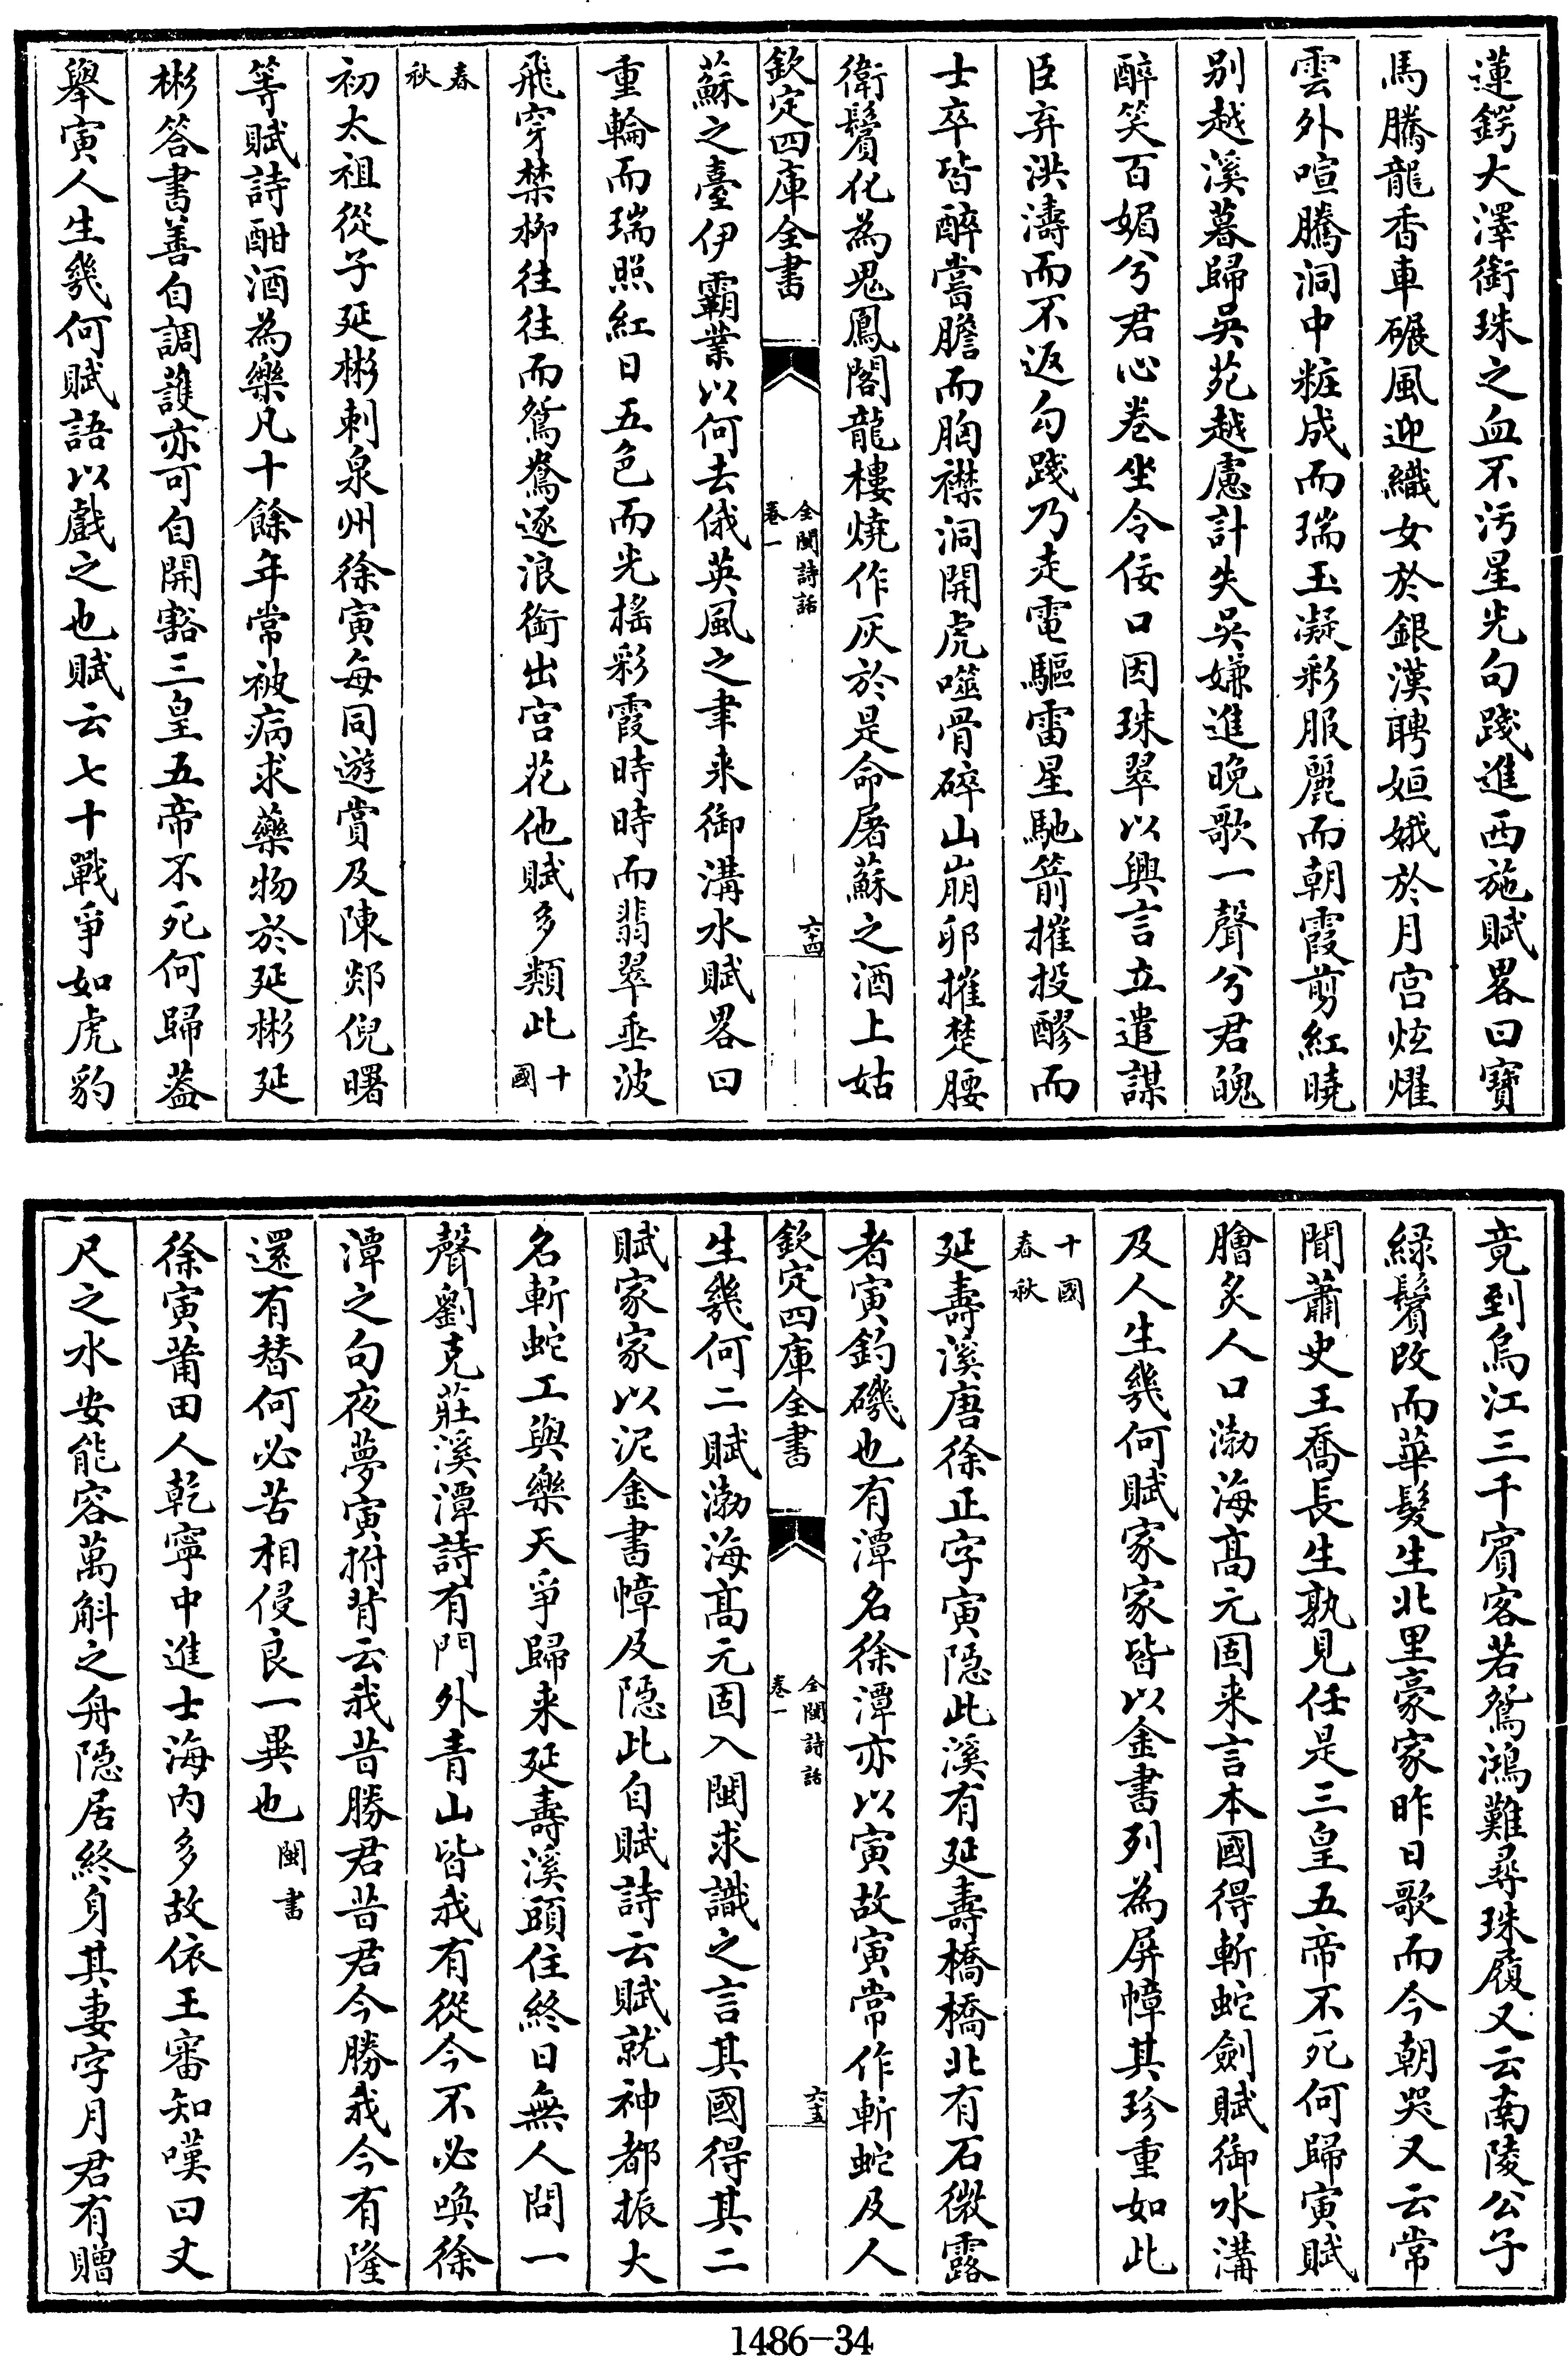 蓮鍔大澤銜珠之血不污星光句踐進西施賦畧曰寶
馬騰龍香車碾風迎織女於銀漢聘姮娥於月宫炫燿
雲外喧騰洞中粧成而瑞玉凝彩服麗而朝霞剪紅曉
别越溪暮歸吳苑越慮計失吳嫌進晚歌一聲兮君醜
醉笑百媚兮君心卷坐令佞口因珠翠以興言立遣謀
臣弃洪濤而不返勾踐乃走電驅雷星馳箭摧投醪而
士卒皆醉嘗膽而胸襟洞開虎噬骨碎山崩卵摧楚腰
衛鬢化為鬼鳳閣龍樓燒作灰於是命屠蘇之酒上姑
欽定四庫全書
全閩詩話
卷一
六十四
蘇之臺伊霸業以何去俄英風之聿来御溝水賦畧曰
重輪而瑞照紅日五色而光摇彩霞時時而翡翠垂波
飛穿禁柳往往而鴛鴦逐浪銜出宫花他賦多類此十國
春秋
初太祖從子延彬刺泉州徐寅每同遊賞及陳郯倪曙
等賦詩酣酒為樂凡十餘年常被病求藥物於延彬延
彬答書善自調護亦可自開豁三皇五帝不死何歸葢
舉寅人生幾何賦語以戲之也賦云七十戰爭如虎豹
竟到烏江三千賓客若鴛鴻難尋珠履又云南陵公子
緑鬢改而華髮生北里豪家昨日歌而今朝哭又云常
聞蕭史王喬長生孰見任是三皇五帝不死何歸寅賦
膾炙人口渤海髙元固来言本國得斬蛇劍賦御水溝
及人生幾何賦家家皆以金書列為屏幛其珍重如此
十國
春秋
延壽溪唐徐正字寅隱此溪有延壽橋橋北有石微露
者寅釣磯也有潭名徐潭亦以寅故寅常作斬蛇及人
欽定四庫全書
全閩詩話
卷一
六十五
生幾何二賦渤海髙元固入閩求識之言其國得其二
賦家家以泥金書幛及隱此自賦詩云賦就神都振大
名斬蛇工與樂天爭歸来延壽溪頭住終日無人問一
聲劉克莊溪潭詩有門外青山皆我有從今不必喚徐
潭之句夜夢寅拊背云我昔勝君昔君今勝我今有隆
還有替何必苦相侵良一異也閩書
徐寅莆田人乾寧中進士海内多故依王審知嘆曰丈
尺之水安能容萬斛之舟隱居終身其妻字月君有贈
1486-34